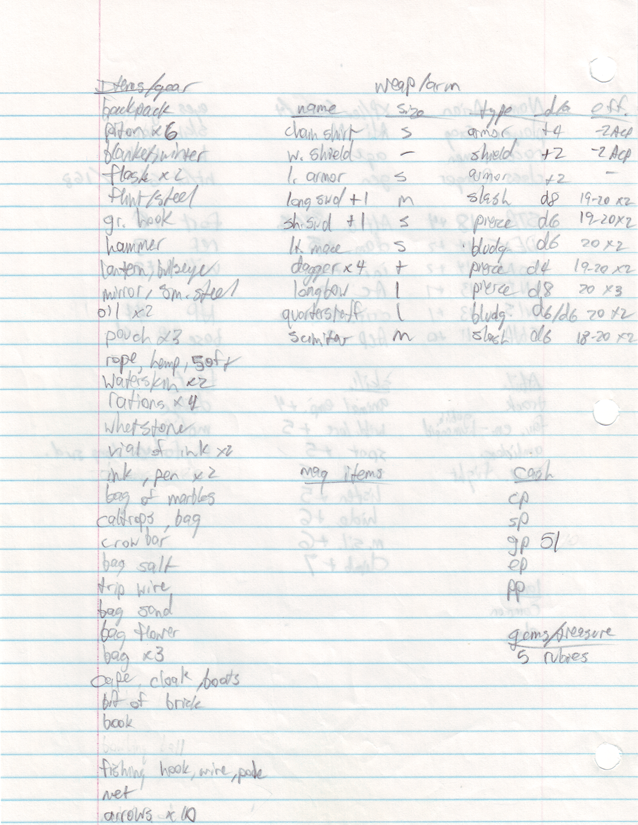 Items/gear
weap/arm
backpack
name size type d/b eff.
piton x6
chain shirt s armor +4 -2 ACP
blanket, winter
w. shield - shield +2 -2 ACP
flask x2
l. armor s armor +2 -
flint/steel
long swd +1 m slash d8 19-20 x2
gr. hook
sh. swd +1 s pierce d6 19-20 x2
hammer
lt mace s bludg d6 20 x2
lantern, bullseye
dagger x4 t pierce d4 19-20 x2
mirror, sm. steel
longbow l pierce d8 20 x3
oil x2
quarterstaff l bludg d6/d6 20 x2
pouch x3
scimitar m slash d6 18-20 x2
rope, hemp, 50ft
waterskin x2
rations x4
whetstone
vial of ink x2
ink, pen x2
mag items
cash
bag of marbles
cp
caltrops, bag
sp
crowbar
gp 51
bag salt
ep
trip wire
pp
bag sand
bag flower
gems/treasure
bag x3
5 rubies
cape, cloak/boots
bit of brick
book
fishing hook, wire, pole
net
arrows x 10